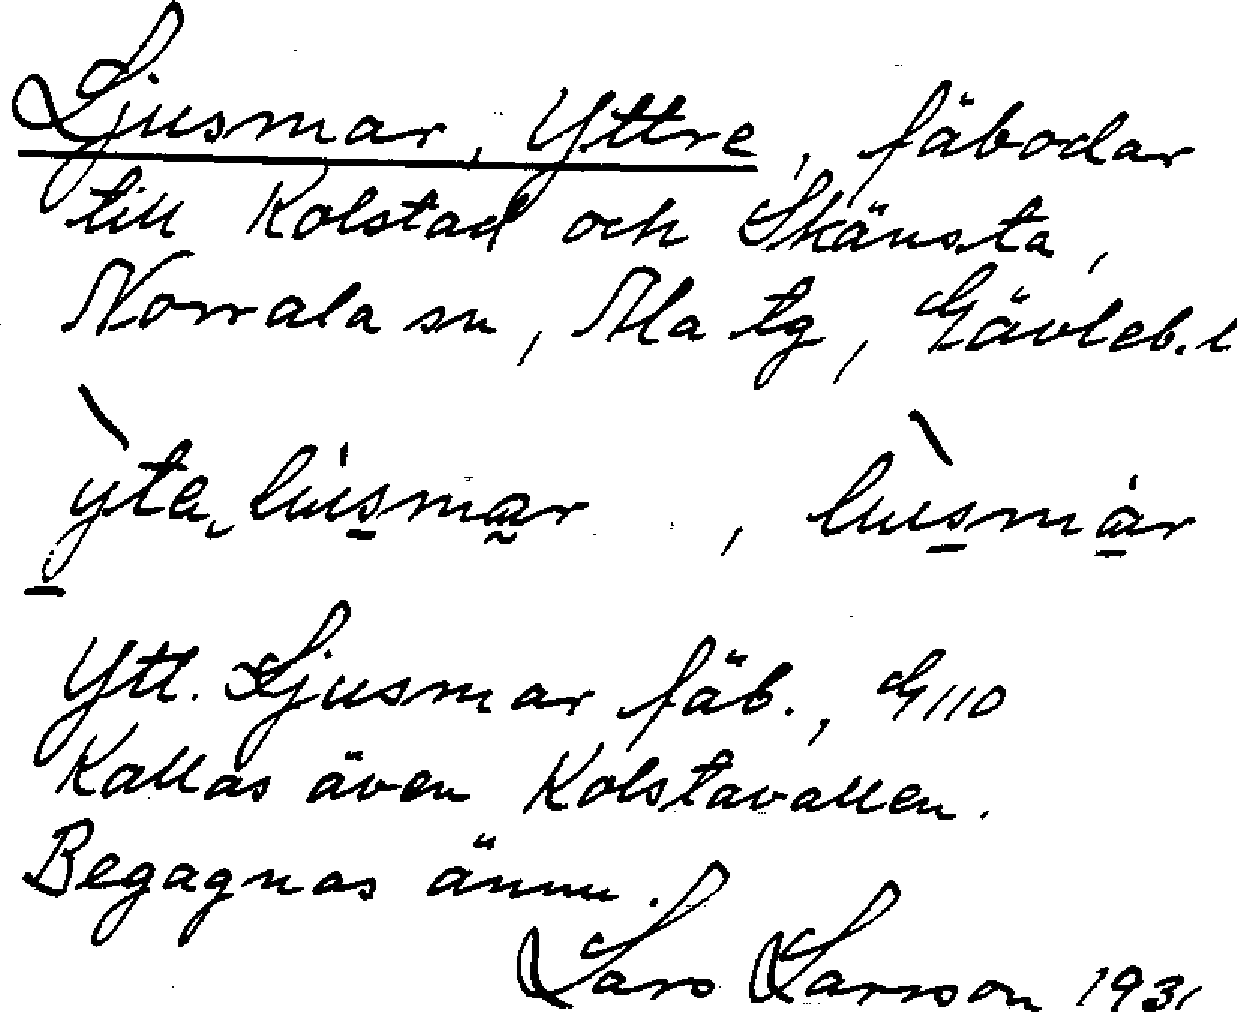 Ljusmar, Yttre, fäbodar
till Kolstad och Skänsta,
Norrala sn, Ala tg, Gävleb. l
yta, liusmar, liusmar
Ytt. Ljusmar fäb., G110
Kallas även Kolstavallen.
Begagnas ännu.
Lars Larsson 1931